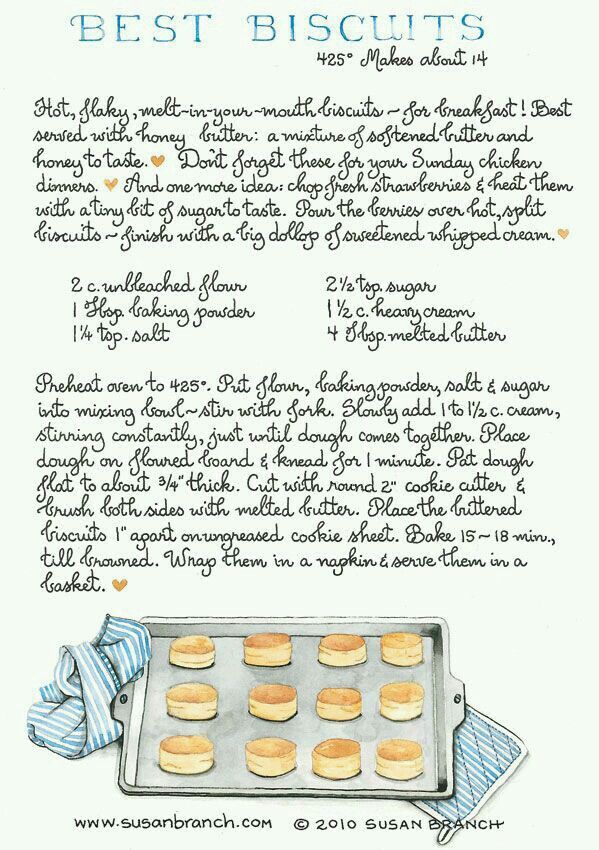 BEST BISCUITS
425° Makes about 14
Hot, flaky, melt-in-your-mouth biscuits ~ for breakfast! Best
served with honey butter: a mixture of softened butter and
honey to taste. Don't forget these for your Sunday chicken
dinners. And one more idea: chop fresh strawberries & heat them
with a tiny bit of sugar to taste. Pour the berries over hot, split
biscuits ~ finish with a big dollop of sweetened whipped cream.
2 c. unbleached flour
1 Tbsp. baking powder
1¼ tsp. salt
2½ tsp. sugar
1½ c. heavy cream
4 Tbsp. melted butter
Preheat oven to 425°. Put flour, baking powder, salt & sugar
into mixing bowl ~ stir with fork. Slowly add 1 to 1½ c. cream,
stirring constantly, just until dough comes together. Place
dough on floured board & knead for 1 minute. Pat dough
flat to about ¾" thick. Cut with round 2" cookie cutter &
brush both sides with melted butter. Place the buttered
biscuits 1" apart on ungreased cookie sheet. Bake 15 ~ 18 min.,
till browned. Wrap them in a napkin & serve them in a
basket.
www.susanbranch.com © 2010 SUSAN BRANCH